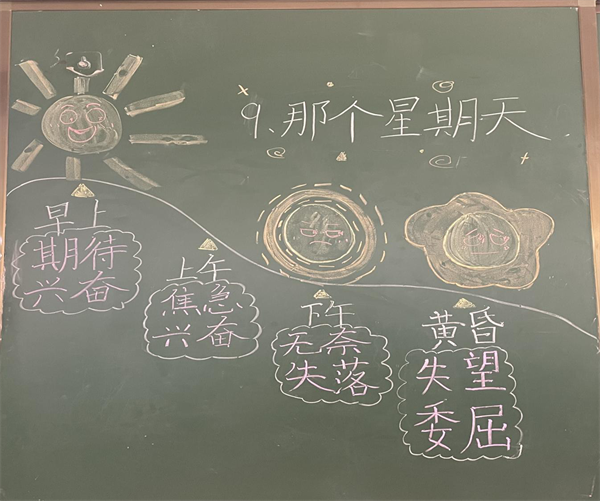 9、那个星期天
早上
期待
兴奋
上午
焦急
兴奋
下午
无奈
失落
黄昏
失望
委屈